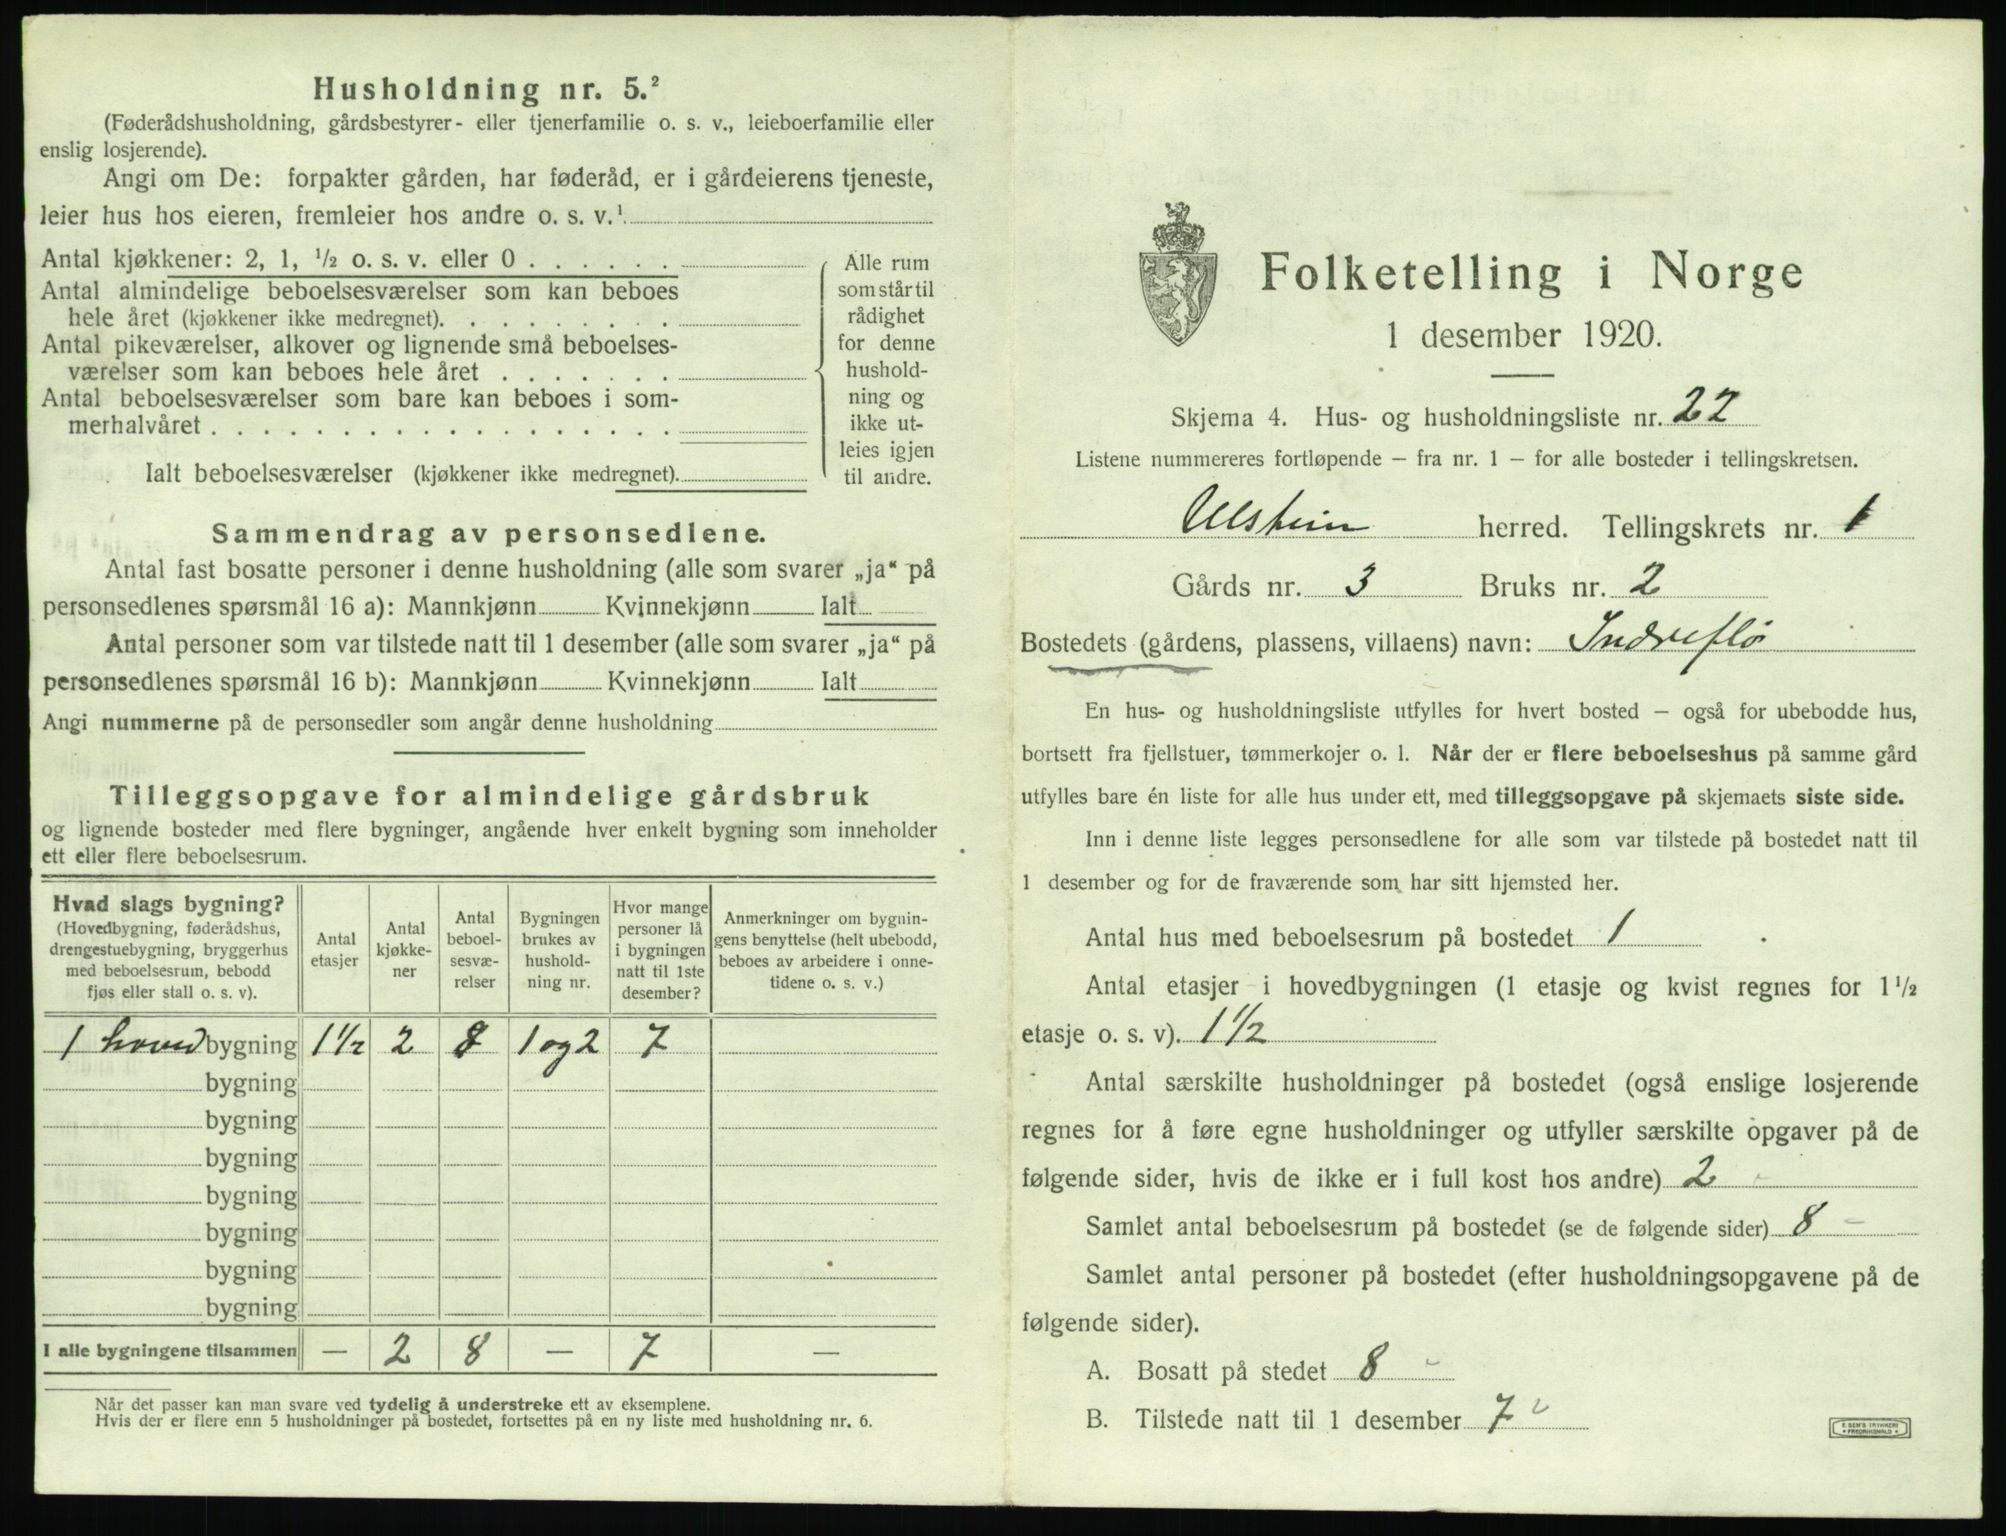 Husholdning nr. 5.²
(Føderådshusholdning, gårdsbestyrer- eller tjenerfamilie o. s. v., leieboerfamilie eller
enslig losjerende).
Angi om De: forpakter gården, har føderåd, er i gårdeierens tjeneste,
leier hus hos eieren, fremleier hos andre o. s. v.¹
Antal kjøkkener: 2, 1, ½ o. s. v. eller 0 . . . . . .
Antal almindelige beboelsesværelser som kan beboes
hele året (kjøkkener ikke medregnet). . . . . . . . .
Antal pikeværelser, alkover og lignende små beboelses-
værelser som kan beboes hele året . . . . . . .
Antal beboelsesværelser som bare kan beboes i som-
merhalvåret . . . . . . . . . . . . . . . . . .
Ialt beboelsesværelser (kjøkkener ikke medregnet).
Alle rum
som står til
rådighet
for denne
hushold-
ning og
ikke ut-
leies igjen
til andre.
Sammendrag av personsedlene.
Antal fast bosatte personer i denne husholdning (alle som svarer „ja“ på
personsedlenes spørsmål 16 a): Mannkjønn Kvinnekjønn Ialt
Antal personer som var tilstede natt til 1 desember (alle som svarer „ja“ på
personsedlenes spørsmål 16 b): Mannkjønn Kvinnekjønn Ialt
Angi nummerne på de personsedler som angår denne husholdning
Tilleggsopgave for almindelige gårdsbruk
og lignende bosteder med flere bygninger, angående hver enkelt bygning som inneholder
ett eller flere beboelsesrum.
Hvad slags bygning?
(Hovedbygning, føderådshus,
drengestuebygning, bryggerhus
med beboelsesrum, bebodd
fjøs eller stall o. s. v).
Antal
etasjer
Antal
kjøkke-
ner
Antal
beboel-
sesvæ-
relser
Bygningen
brukes av
hushold-
ning nr.
Hvor mange
personer lå
i bygningen
natt til 1ste
desember?
Anmerkninger om bygnin-
gens benyttelse (helt ubebodd,
beboes av arbeidere i onne-
tidene o. s. v.)
1 hoved bygning 1½ 2 8 1 og 2 7
bygning
bygning
bygning
bygning
bygning
bygning
bygning
I alle bygningene tilsammen — 2 8 — 7 —
Når det passer kan man svare ved tydelig å understreke ett av eksemplene.
Hvis der er flere enn 5 husholdninger på bostedet, fortsettes på en ny liste med husholdning nr. 6.
Folketelling i Norge
1 desember 1920.
Skjema 4. Hus- og husholdningsliste nr. 22
Listene nummereres fortløpende – fra nr. 1 – for alle bosteder i tellingskretsen.
Ulstein herred. Tellingskrets nr. 1
Gårds nr. 3 Bruks nr. 2
Bostedets (gårdens, plassens, villaens) navn: Indreflø
En hus- og husholdningsliste utfylles for hvert bosted – også for ubebodde hus,
bortsett fra fjellstuer, tømmerkojer o. l. Når der er flere beboelseshus på samme gård
utfylles bare én liste for alle hus under ett, med tilleggsopgave på skjemaets siste side.
Inn i denne liste legges personsedlene for alle som var tilstede på bostedet natt til
1 desember og for de fraværende som har sitt hjemsted her.
Antal hus med beboelsesrum på bostedet 1
Antal etasjer i hovedbygningen (1 etasje og kvist regnes for 1½
etasje o. s. v). 1½
Antal særskilte husholdninger på bostedet (også enslige losjerende
regnes for å føre egne husholdninger og utfyller særskilte opgaver på de
følgende sider, hvis de ikke er i full kost hos andre) 2
Samlet antal beboelsesrum på bostedet (se de følgende sider) 8
Samlet antal personer på bostedet (efter husholdningsopgavene på de
følgende sider).
A. Bosatt på stedet 8
B. Tilstede natt til 1 desember 7
E. SEM'S TRYKKERI
FREDRIKSHALD